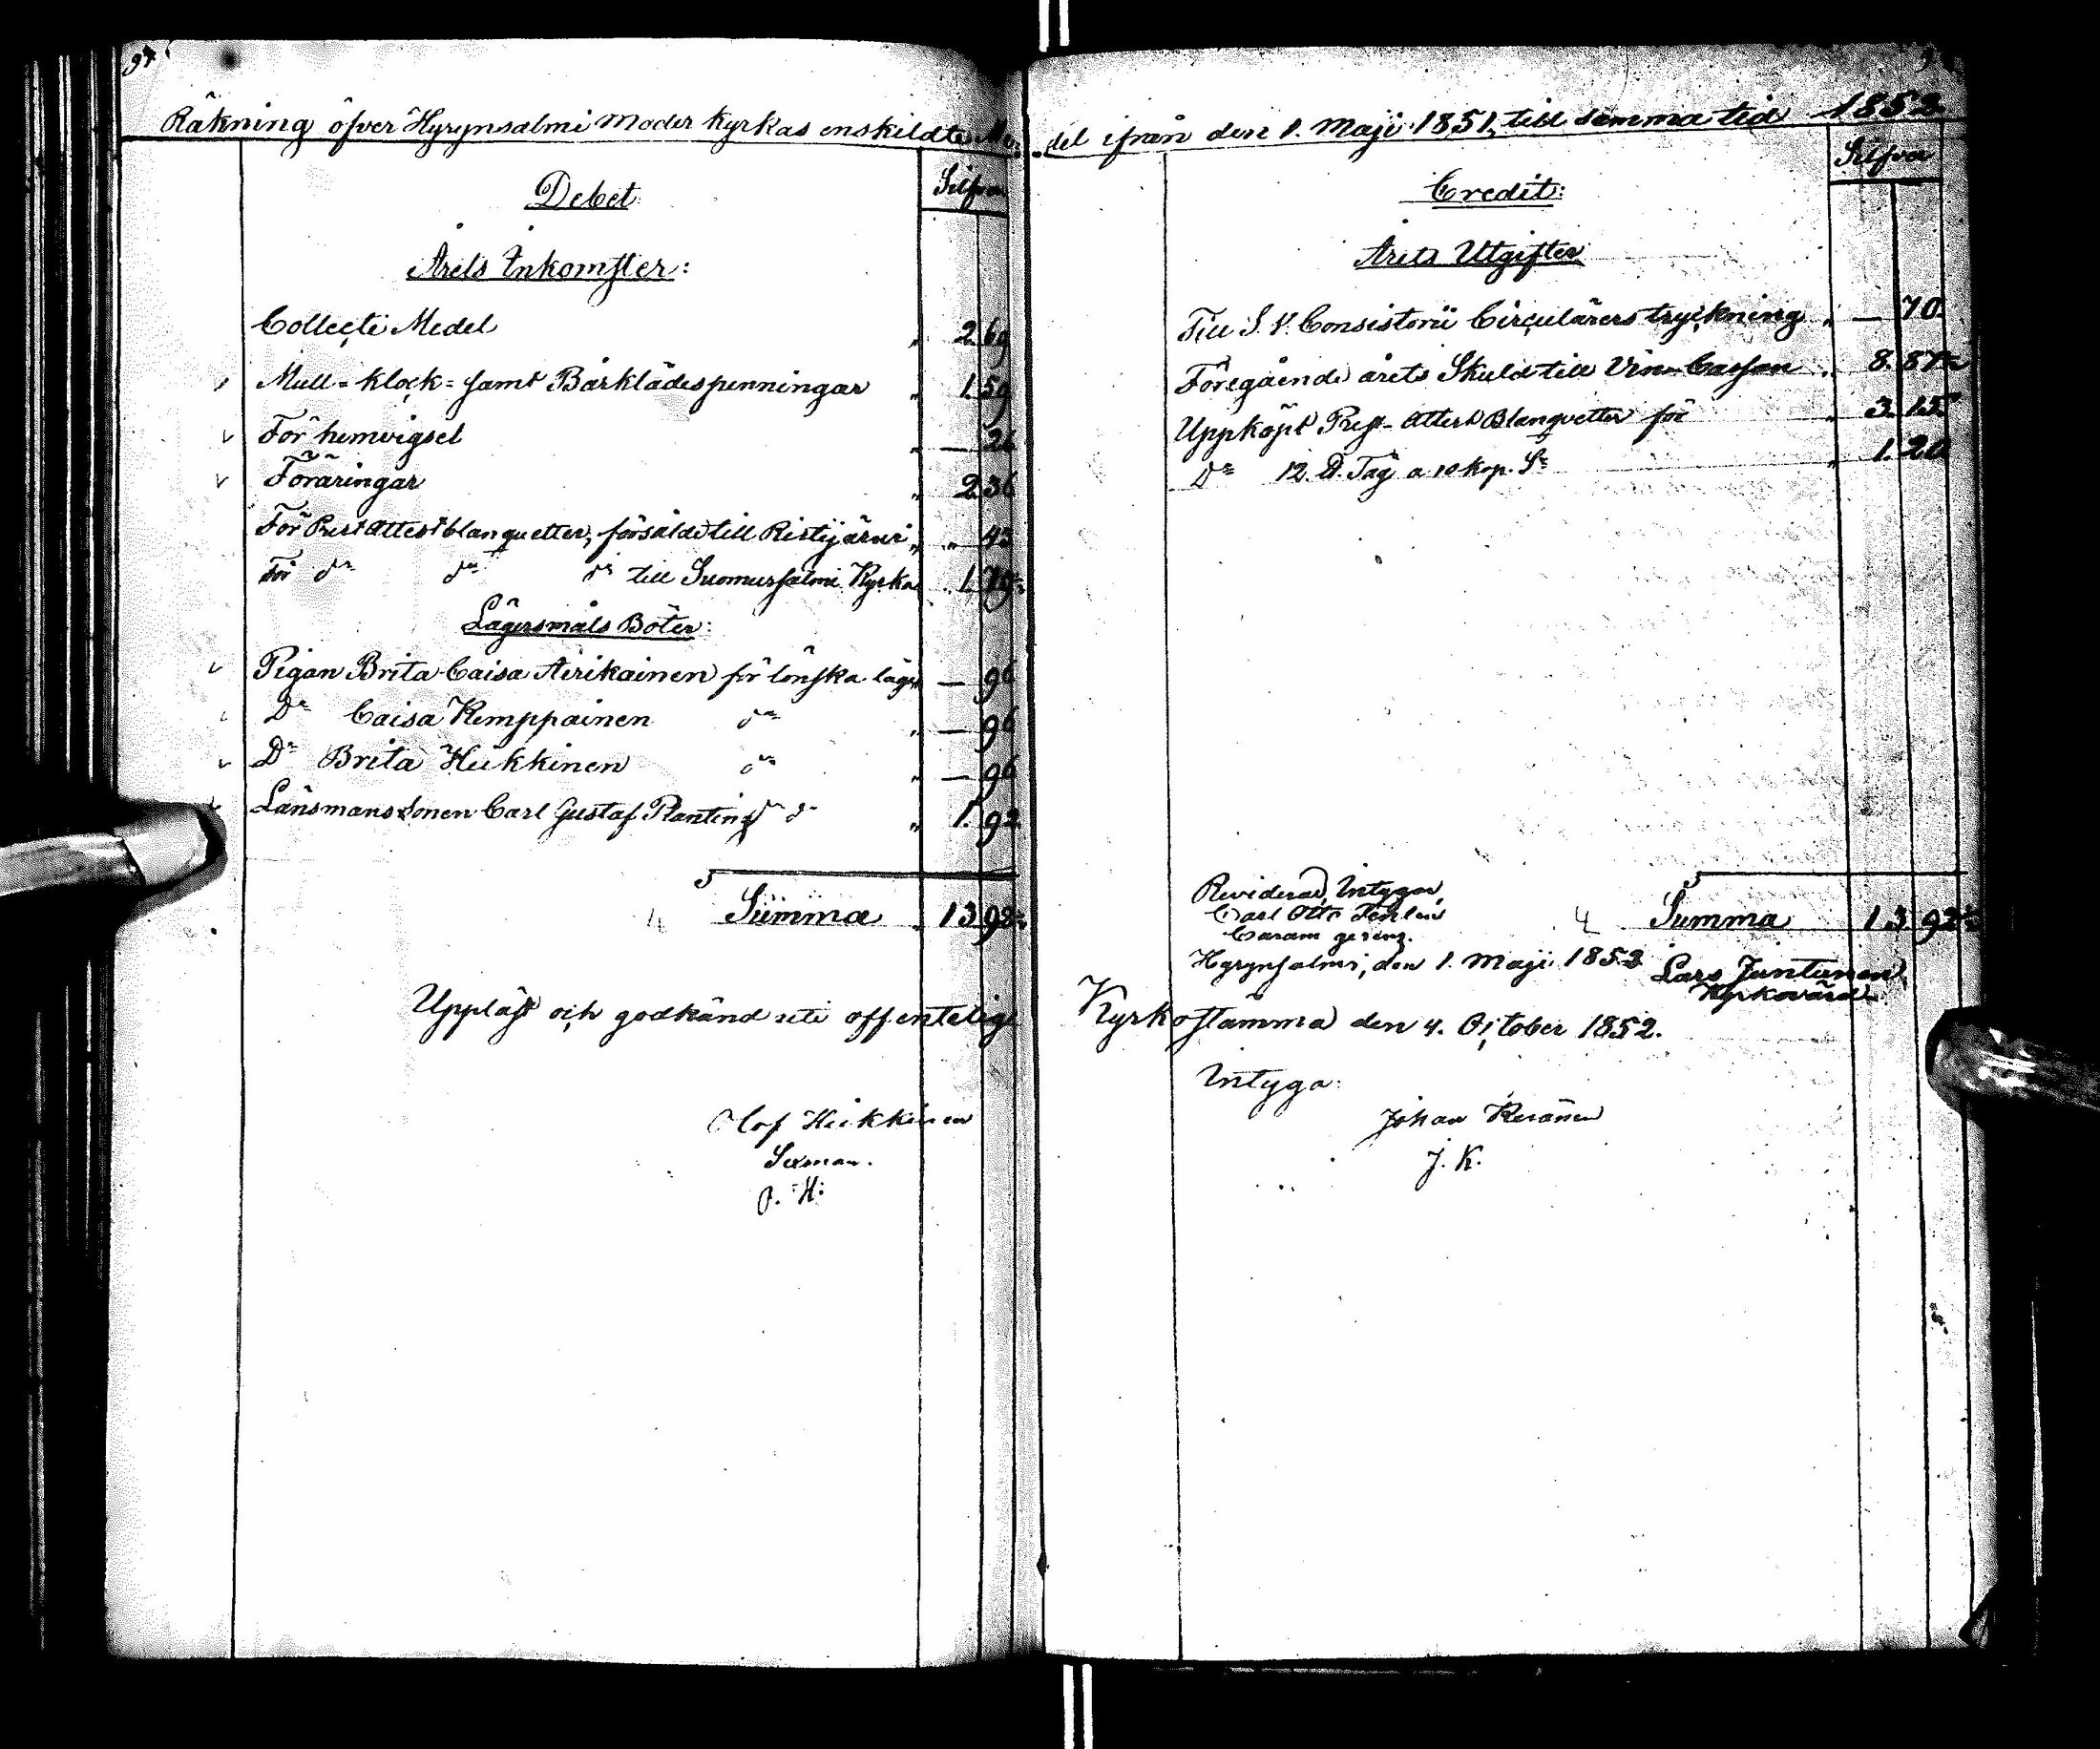 94
Räkning öfver Hyrynsalmi Moder Kyrkas enskildte Me-
Debet:
Silfver
Årets Inkomster:
Collecti Medel „ 2. 69
Mull- klock- samt Bårklädespenningar „ 1. 59
För hemvigsel „ — 26
Föräringar „ 2. 36
För Prest Attest blanquetter, försålde till Ristijärvi „ „ 43
För do do do till Suomussalmi Kyrka 1. 79
Lägersmåls Böter:
Pigan Brita Caisa Airikainen för lönska läge — 96
Do Caisa Kemppainen do „ — 96
Do Brita Heikkinen do „ — 96
Länsmans Sonen Carl Gustaf Planting do do „ 1. 92
Summa 13 92½
Uppläst och godkänd uti offentelig
Olof Heikkinen
Sexman.
O. H:
del ifrån den 1. Maji 1851, till samma tid 1852
Silfver
Credit:
Årets Utgifter
Till S. V. Consistorii Circulärers tryckning „ — 70
Föregående årets Skuld till Vin-Cassan „ 8. 87½
Uppköpt Prest-Attest Blanquetter för „ 3. 15
Do 12. D. Tåg a 10 kop. Sr „ 1. 20
Reviderad, Intygar,
Carl Otto
Summa 13 92½
Hyrynsalmi, den 1. Maji 1853
Lars Juntunen
Kyrkovärd
Kyrkostämma den 4. October 1852.
Intyga:
Johan Keränen
J. K.